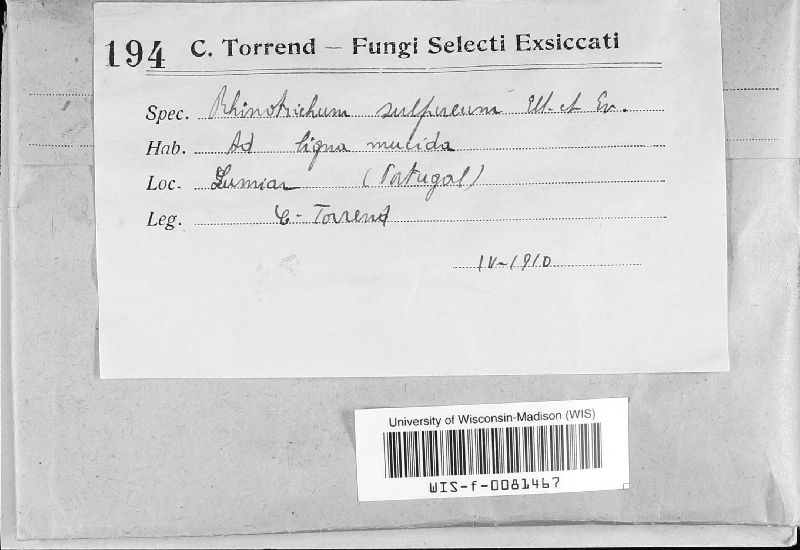 194 C. Torrend – Fungi Selecti Exsiccati
Spec. Rhinotrichum sulfureum Ell. et Ev.
Hab. Ad ligna mucida
Loc. Lumiar (Portugal)
Leg. C. Torrend
IV-1910
University of Wisconsin-Madison (WIS)
WIS-f-0081467